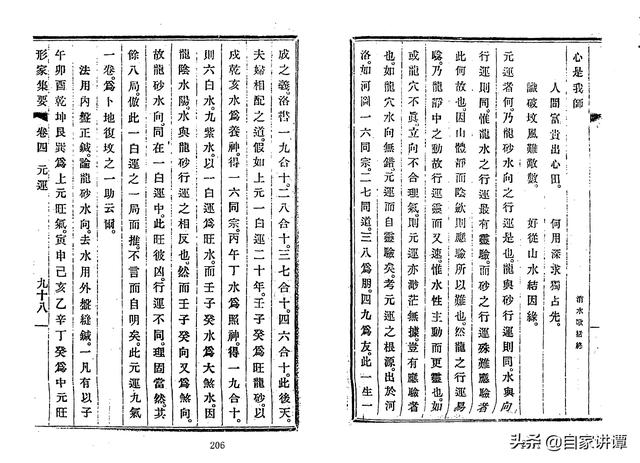 心是我師
人間富貴出心田。 何用深求獨占先。
識破坟風難敵數。 好從山水結因緣。
元運者何。乃龍砂水向之行運是也。龍與砂行運則同。水與向
行運則同。惟龍水之行運最有靈驗。而砂之行運殊難應驗者
此何故也。因山體靜而陰歛則應驗所以難也。然龍之行運易
驗。乃龍靜中之動。故行運靈而又速。惟水性主動而更靈也。如
或龍穴不眞。立向不合理氣。則元運亦渺茫無據。豈有應驗者
也。如龍穴水向無錯。元運而自靈驗矣。考元運之根源。出於河
洛。如河圖一六同宗。二七同道。三八爲朋。四九爲友。此一生一
成之義。洛書一九合十。二八合十。三七合十。四六合十。此後天
夫婦相配之道。假如上元一白運二十年。壬子癸爲旺龍砂。以
戌乾亥水爲養神。得一六同宗。丙午丁水爲照神。得一九合十。
則六白水九紫水。以一白運爲旺水。而壬子癸水爲大煞水。因
龍陰水陽。水與龍砂行運之相反也。然而壬子癸向又爲煞向。
故龍砂水向。同在一白運中。此旺彼凶。行運不同。理固當然。其
餘八局。倣此一白運之一局而推。不言而自明矣。此元運九氣
一卷。爲卜地復坟之一助云爾。
法用內盤正鍼。論龍砂水向。去水用外盤縫鍼。一凡有以子
午卯酉乾坤艮巽爲上元旺氣。寅申己亥乙辛丁癸爲中元旺
形家集要 卷四 元運 九十八
206
头条 @自家讲谭